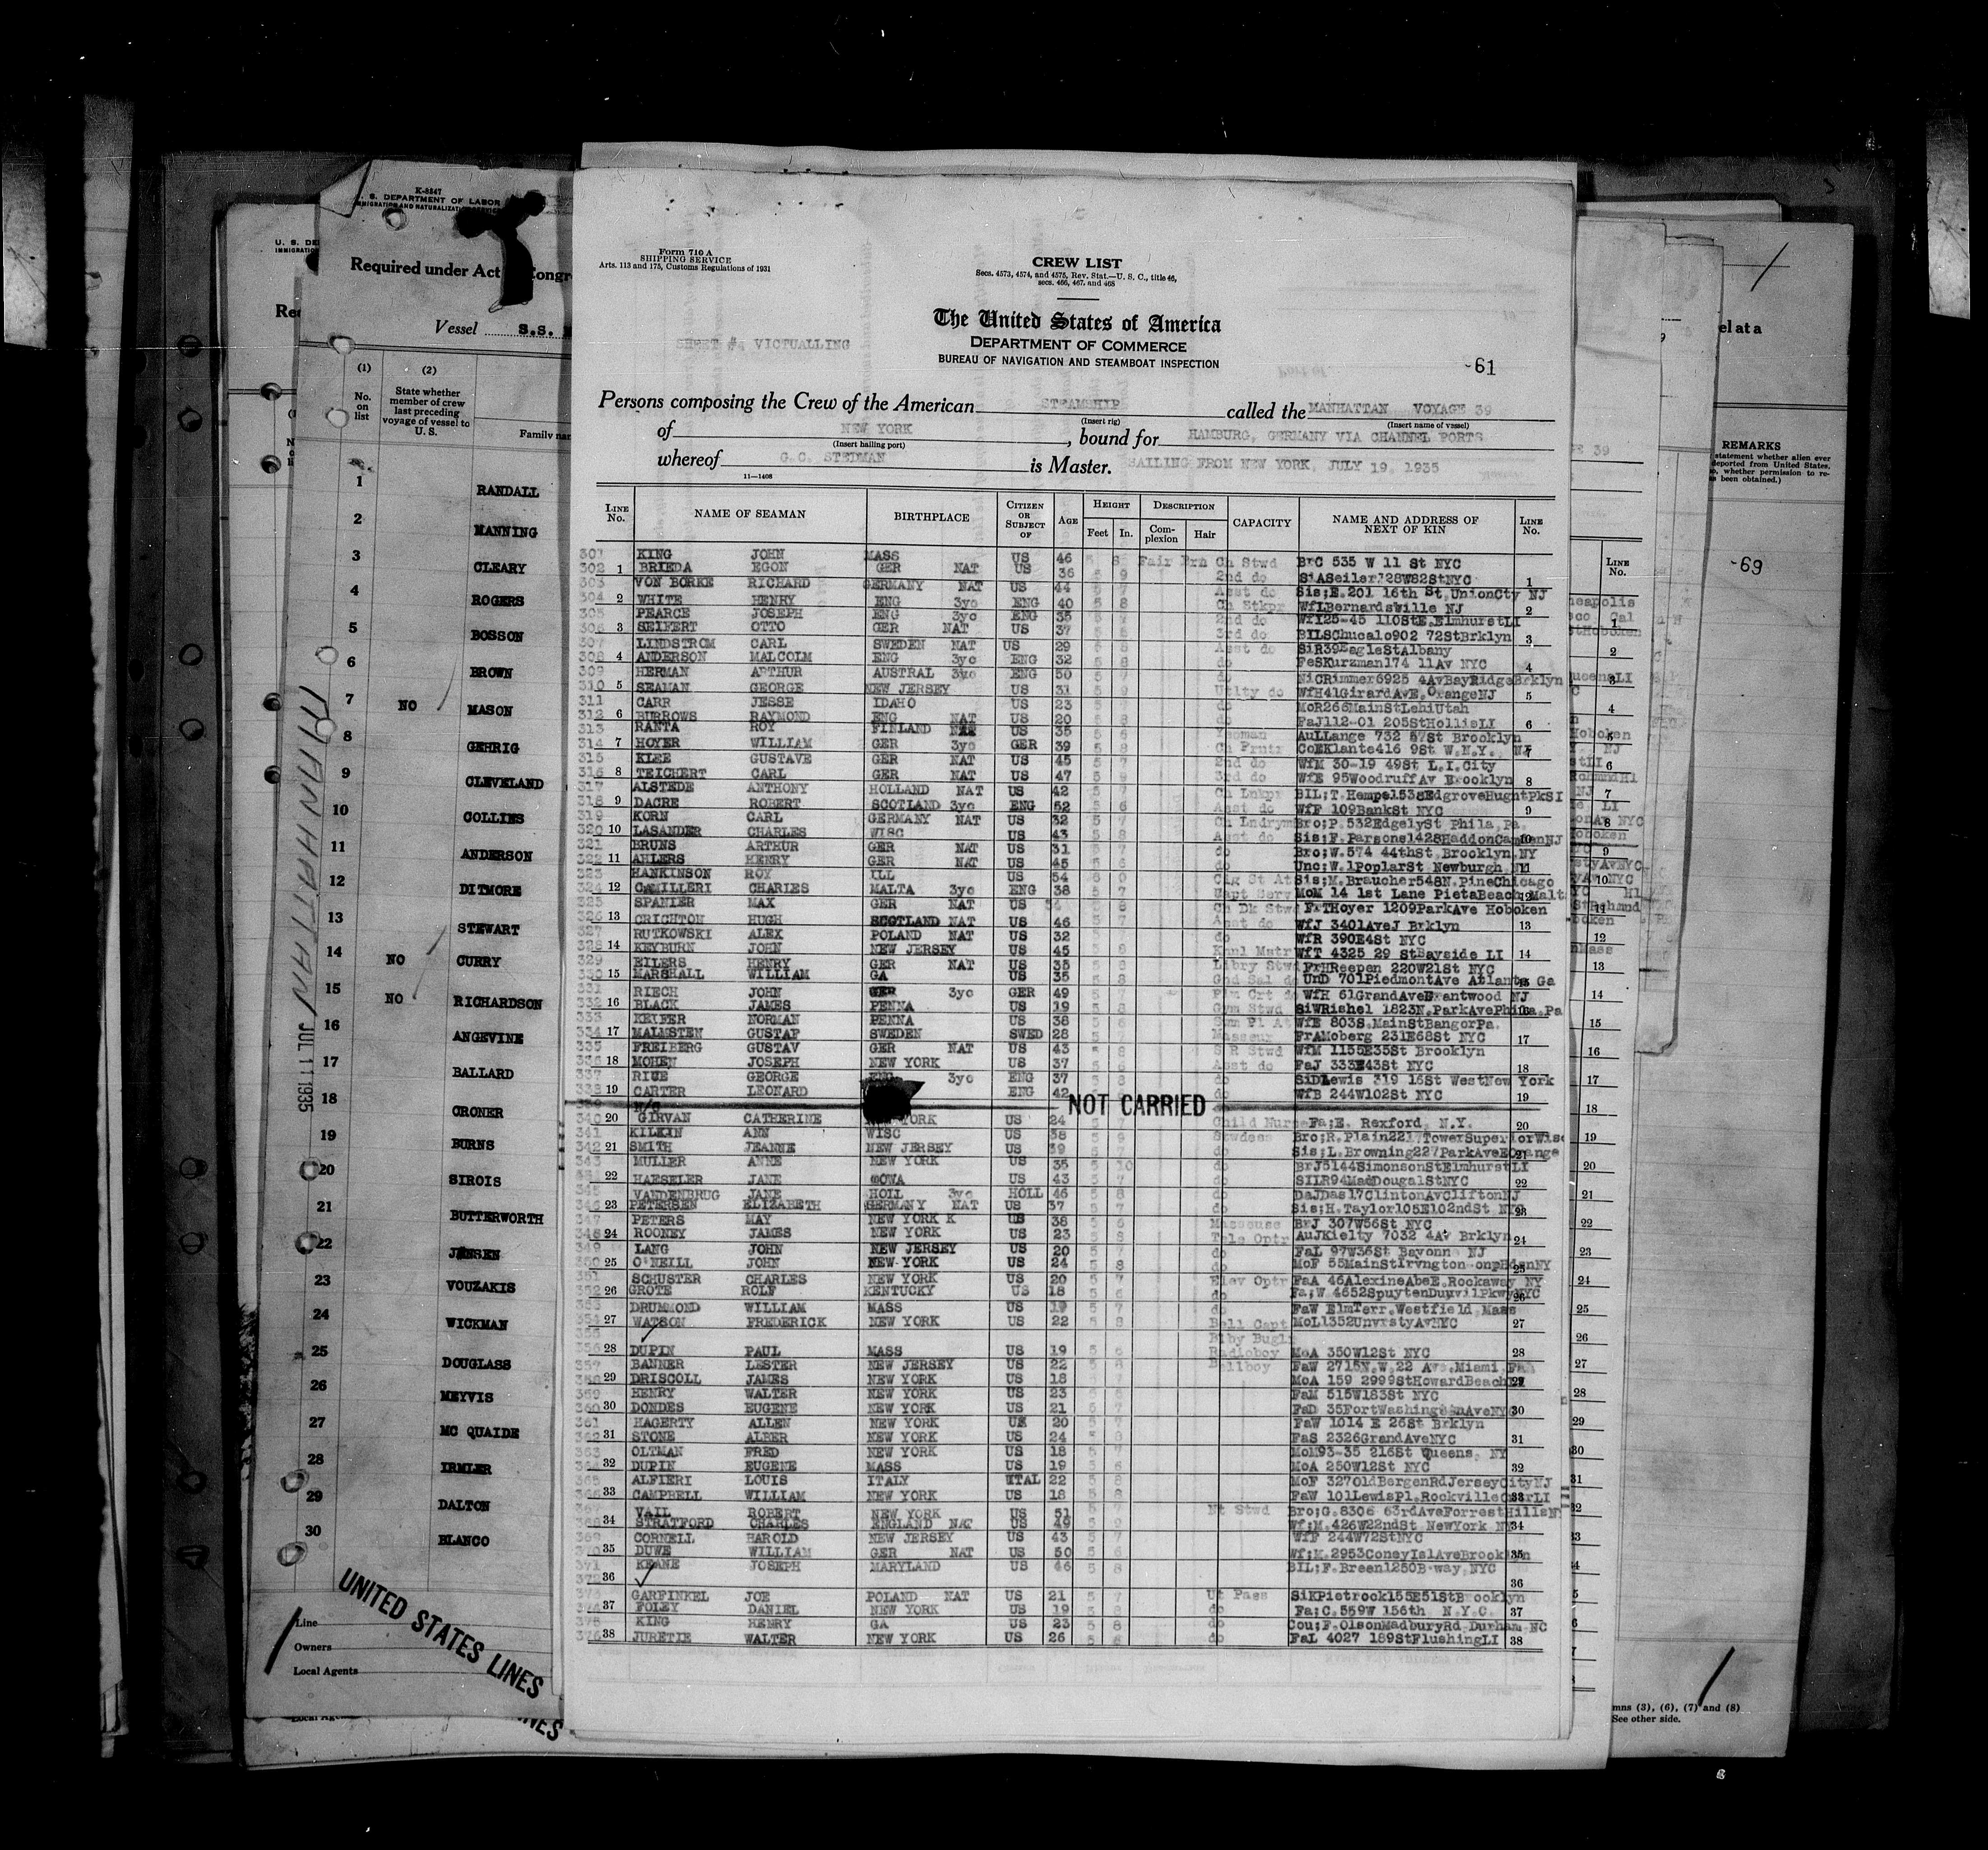 K-8847
S. DEPARTMENT OF LABOR
IMMIGRATION AND NATURALIZATION
Required under Act Congr
Vessel S.S.
(1) (2)
No. on list
State whether member of crew last preceding voyage of vessel to U. S.
Family nam
1 RANDALL
2 MANNING
3 CLEARY
4 ROGERS
5 BOSSON
6 BROWN
7 NO MASON
8 GEHRIG
9 CLEVELAND
10 COLLINS
11 ANDERSON
12 DITMORE
13 STEWART
14 NO CURRY
15 NO RICHARDSON
16 ANGEVINE
17 BALLARD
18 CRONER
19 BURNS
20 SIROIS
21 BUTTERWORTH
22 JENSEN
23 VOUZAKIS
24 WICKMAN
25 DOUGLASS
26 MEYVIS
27 MC QUAIDE
28 IRMLER
29 DALTON
30 BLANCO
MANHATTAN JUL 11 1935
Line
Owners
Local Agents
UNITED STATES LINES
Form 710 A
SHIPPING SERVICE
Arts. 113 and 175, Customs Regulations of 1931
CREW LIST
Secs. 4573, 4574, and 4575, Rev. Stat.—U. S. C., title 46,
secs. 466, 467, and 468
The United States of America
DEPARTMENT OF COMMERCE
BUREAU OF NAVIGATION AND STEAMBOAT INSPECTION
SHEET #4 VICTUALLING
-61
Persons composing the Crew of the American STEAMSHIP called the MANHATTAN VOYAGE 39
(Insert rig) (Insert name of vessel)
of NEW YORK, bound for HAMBURG, GERMANY VIA CHANNEL PORTS
(Insert hailing port)
whereof G.C. STEDMAN is Master. SAILING FROM NEW YORK, JULY 19, 1935
11—1408
LINE No. NAME OF SEAMAN BIRTHPLACE CITIZEN OR SUBJECT OF AGE HEIGHT Feet In. DESCRIPTION Complexion Hair CAPACITY NAME AND ADDRESS OF NEXT OF KIN LINE No.
301 KING JOHN MASS US 46 5 8 Fair Brn Ch Stwd BrC 535 W 11 St NYC
302 1 BRIEDA EGON GER NAT US 36 5 9 2nd do SiASeiler728W82StNYC 1
303 VON BORKE RICHARD GERMANY NAT US 44 5 7 Asst do Sis;E.201 16th St.UnionCty NJ
304 2 WHITE HENRY ENG 3yo ENG 40 5 8 Ch Stkpr WfLBernardsville NJ 2
305 PEARCE JOSEPH ENG 3yo ENG 35 5 7 2nd do WfI25-45 110StE.ElmhurstLI
306 3 SEIFERT OTTO GER NAT US 37 3rd do BILSChucalo902 72StBrklyn 3
307 LINDSTROM CARL SWEDEN NAT US 29 5 8 Asst do SiR39EagleStAlbany
308 4 ANDERSON MALCOLM ENG 3yo ENG 32 5 8 do FeSKurzman174 11Av NYC 4
309 HERMAN ARTHUR AUSTRAL 3yo ENG 50 5 7 do NiCRimmer6925 4AvBayRidgeBrklyn
310 5 SEAMAN GEORGE NEW JERSEY US 31 5 9 Utlty do WfH41GirardAvE.OrangeNJ 5
311 CARR JESSE IDAHO US 23 do MoR266MainStLehiUtah
312 6 BURROWS RAYMOND ENG NAT US 20 do FaJ112-01 205StHollisLI 6
313 RANTA ROY FINLAND US 35 Yeoman AuLLange 732 57St Brooklyn
314 7 HOYER WILLIAM GER 3yo GER 39 5 8 Ch Prntr CoEKlante416 9St W.N.Y. NJ 7
315 KLEE GUSTAVE GER NAT US 45 5 7 2nd do WfM 30-19 49St L.I.City
316 8 TEICHERT CARL GER NAT US 47 5 9 3rd do WfE 95Woodruff Av Brooklyn 8
317 ALSTEDE ANTHONY HOLLAND NAT US 42 5 7 Ch Lnkpr BIL;T.Hempel538EdgroveHughtPkSI
318 9 DACRE ROBERT SCOTLAND 3yo ENG 52 5 6 Asst do WfF 109BankSt NYC 9
319 KORN CARL GERMANY NAT US 32 5 7 Ch Lndrym Bro;P.532EdgelySt Phila,Pa.
320 10 LASANDER CHARLES WISC US 43 5 8 Asst do Sis;F.Parsons1428HaddonCamdenNJ
321 BRUNS ARTHUR GER NAT US 31 5 7 do Bro;W.574 44thSt.Brooklyn,NY
322 11 AHLERS HENRY GER NAT US 45 5 6 do Unc;W.1PoplarSt Newburgh 11
323 HANKINSON ROY ILL US 54 6 0 Clg St At Sis;M.Braucher548N.PineChicago
324 12 CAMILLERI CHARLES MALTA 3yo ENG 38 5 7 Capt Serv MoM 14 1st Lane PietaBeach Malt
325 SPANIER MAX GER NAT US 5 8 Ch Dk Stwd FrTHoyer 1209ParkAve Hoboken
326 13 CRICHTON HUGH SCOTLAND NAT US 46 5 7 Asst do WfJ 3401AveJ Brklyn 13
327 RUTKOWSKI ALEX POLAND NAT US 32 5 7 do WfR 390E4St NYC
328 14 KEYBURN JOHN NEW JERSEY US 45 5 8 Knnl Mstr WfT 4325 29 StBayside LI 14
329 EILERS HENRY GER NAT US 35 5 8 Libry Stwd FrHReepen 220W21St NYC
330 15 MARSHALL WILLIAM GA US 35 5 8 UnD 701PiedmontAve Atlanta Ga
331 RIECH JOHN GER 3yo GER 49 WfH 61GrandAve NJ
332 16 BLACK JAMES PENNA US 19 5 8 Gym Stwd SiWRishel 1823N.ParkAvePhila.Pa
333 KEIFER NORMAN PENNA US 38 Swm Pl At WfE 803S.MainStBangorPa.
334 17 MALMSTEN GUSTAF SWEDEN SWED 28 Masseur FrAMoberg 231E68St NYC 17
335 FREIBERG GUSTAV GER NAT US 43 5 8 S R Stwd WfM 1155E35St Brooklyn
336 18 MOHEN JOSEPH NEW YORK US 37 Asst do FaJ 333E43St NYC 18
337 GEORGE ENG 3yo ENG 37 5 8 do SiDLewis 319 16St WestNew York
338 19 CARTER LEONARD ENG 42 do WfB 244W102St NYC 19
NOT CARRIED
340 20 GIRVAN CATHERINE YORK US 24 5 7 Child Nurse Fa;E. Rexford, N.Y. 20
341 KILKIN ANN WISC US 38 5 9 Stwdess Bro;R.Plain2217TowerSuperiorWisc
342 21 SMITH JEANNE NEW JERSEY US 39 5 7 do Sis;L.Browning227ParkAveEOrange
343 MULLER ANNE NEW YORK US 35 5 10 do BrJ5144SimonsonStElmhurstLI
22 HAESELER JANE IOWA US 43 5 7 do SILR94MadDougalStNYC 22
345 VANDENBRUG JANE HOLL 3yo HOLL 46 5 8 do DaJDas17ClintonAvCliftonNJ
346 23 PETERSEN ELIZABETH GERMANY NAT US 37 5 7 do Sis;H.Taylor105E102ndSt 23
347 PETERS MAY NEW YORK K US 38 5 6 Masseuse BrJ 307W56St NYC
348 24 ROONEY JAMES NEW YORK US 23 5 8 Tele Optr AuJKielty 7032 4Av Brklyn 24
349 LANG JOHN NEW JERSEY US 20 5 7 do FaL 97W36St Bayonn NJ
350 25 O'NEILL JOHN NEW YORK US 24 5 8 do MoF 55MainStIrvngton
351 SCHUSTER CHARLES NEW YORK US 20 5 7 Elev Optr FaA 46AlexineAbeE.Rockaway NY
352 26 GROTE ROLF KENTUCKY US 18 5 6 do Fa;W 4652SpuytenDuyvilPkwyNYC
353 DRUMMOND WILLIAM MASS US 19 5 7 do FaW ElmTerr.Westfield Mass
354 27 WATSON FREDERICK NEW YORK US 22 5 8 Bell Capt MoL1352UnvrstyAvNYC 27
355 Blby Bugl
356 28 DUPIN PAUL MASS US 19 5 6 Radioboy MoA 350W12St NYC 28
357 BANNER LESTER NEW JERSEY US 22 5 8 Bellboy FaW 2715N.W.22 Ave.Miami
358 29 DRISCOLL JAMES NEW YORK US 18 MoA 159 2999StHowardBeach 29
359 HENRY WALTER NEW YORK US 23 FaM 515W183St NYC
360 30 DONDES EUGENE NEW YORK US 21 FaD 35FortWashingtonAveNYC 30
361 HAGERTY ALLEN NEW YORK US 20 5 7 FaW 1014 E 26St Brklyn
362 31 STONE ALBER NEW YORK US 24 5 8 FaS 2326GrandAveNYC 31
363 OLTMAN FRED NEW YORK US 18 5 7 MoM93-35 216St Queens, NY
364 32 DUPIN EUGENE MASS US 19 5 6 MoA 250W12St NYC 32
365 ALFIERI LOUIS ITALY ITAL 22 5 8 MoF 327OldBergenRdJerseyCityNJ
366 33 CAMPBELL WILLIAM NEW YORK US 18 5 8 FaW 101LewisPl.Rockville LI
367 VAIL ROBERT NEW YORK US 51 5 7 Nt Stwd Bro;G.8306 63rdAveForrestHillsN
368 34 STRATFORD CHARLES ENGLAND NAT US 49 5 2 Wf;M.426W22ndSt NewYork 34
369 CORNELL HAROLD NEW JERSEY US 43 5 7 WfF 244W72StNYC
370 35 DUWE WILLIAM GER NAT US 50 5 6 Wf;M.2953ConeyIslAveBrooklyn
371 KEANE JOSEPH MARYLAND US 46 5 8 BIL;F.Breen1250B-way,NYC
372 36 36
373 GARFINKEL JOE POLAND NAT US 21 5 7 Ut Pass SiKPietrock155E51StBrooklyn
374 37 FOLEY DANIEL NEW YORK US 19 5 8 do Fa;C.559W 156th N.Y.C. 37
375 KING HENRY GA US 23 5 8 do Cou;F.OlsonMadburyRd Durham NC
376 38 JURETIE WALTER NEW YORK US 26 5 8 do FaL 4027 189StFlushingLI 38
REMARKS
statement whether alien ever
deported from United States,
whether permission to re-
been obtained.)
-69
mns (3), (6), (7) and (8)
See other side.